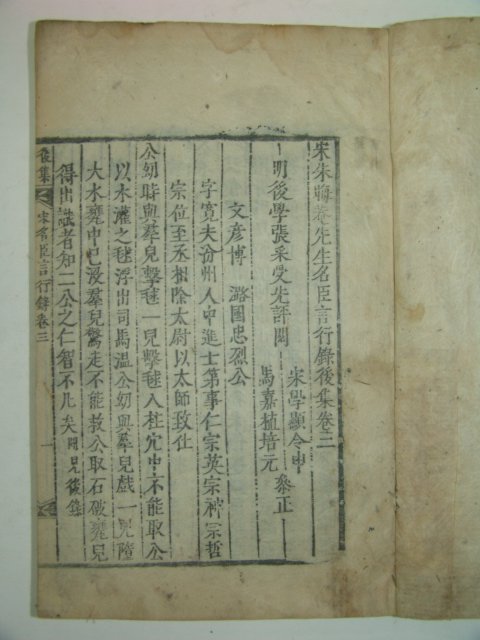 宋朱晦菴先生名臣言行錄後集卷三
明後學張采受先評閱　宋學顯令申
馬嘉植培元　參正
文彥博　潞國忠烈公
字寬夫汾州人中進士第事仁宗英宗神宗哲
宗位至丞相除太尉以太師致仕
公幼時與羣兒擊毬一兒擊毬入柱穴中不能取公
以水灌之毬浮出司馬溫公幼與羣兒戲一兒墮
大水甕中已沒羣兒驚走不能救公取石破甕兒
得出識者知二公之仁智不凡矣聞見後錄
後集　宋名臣言行錄卷三　一